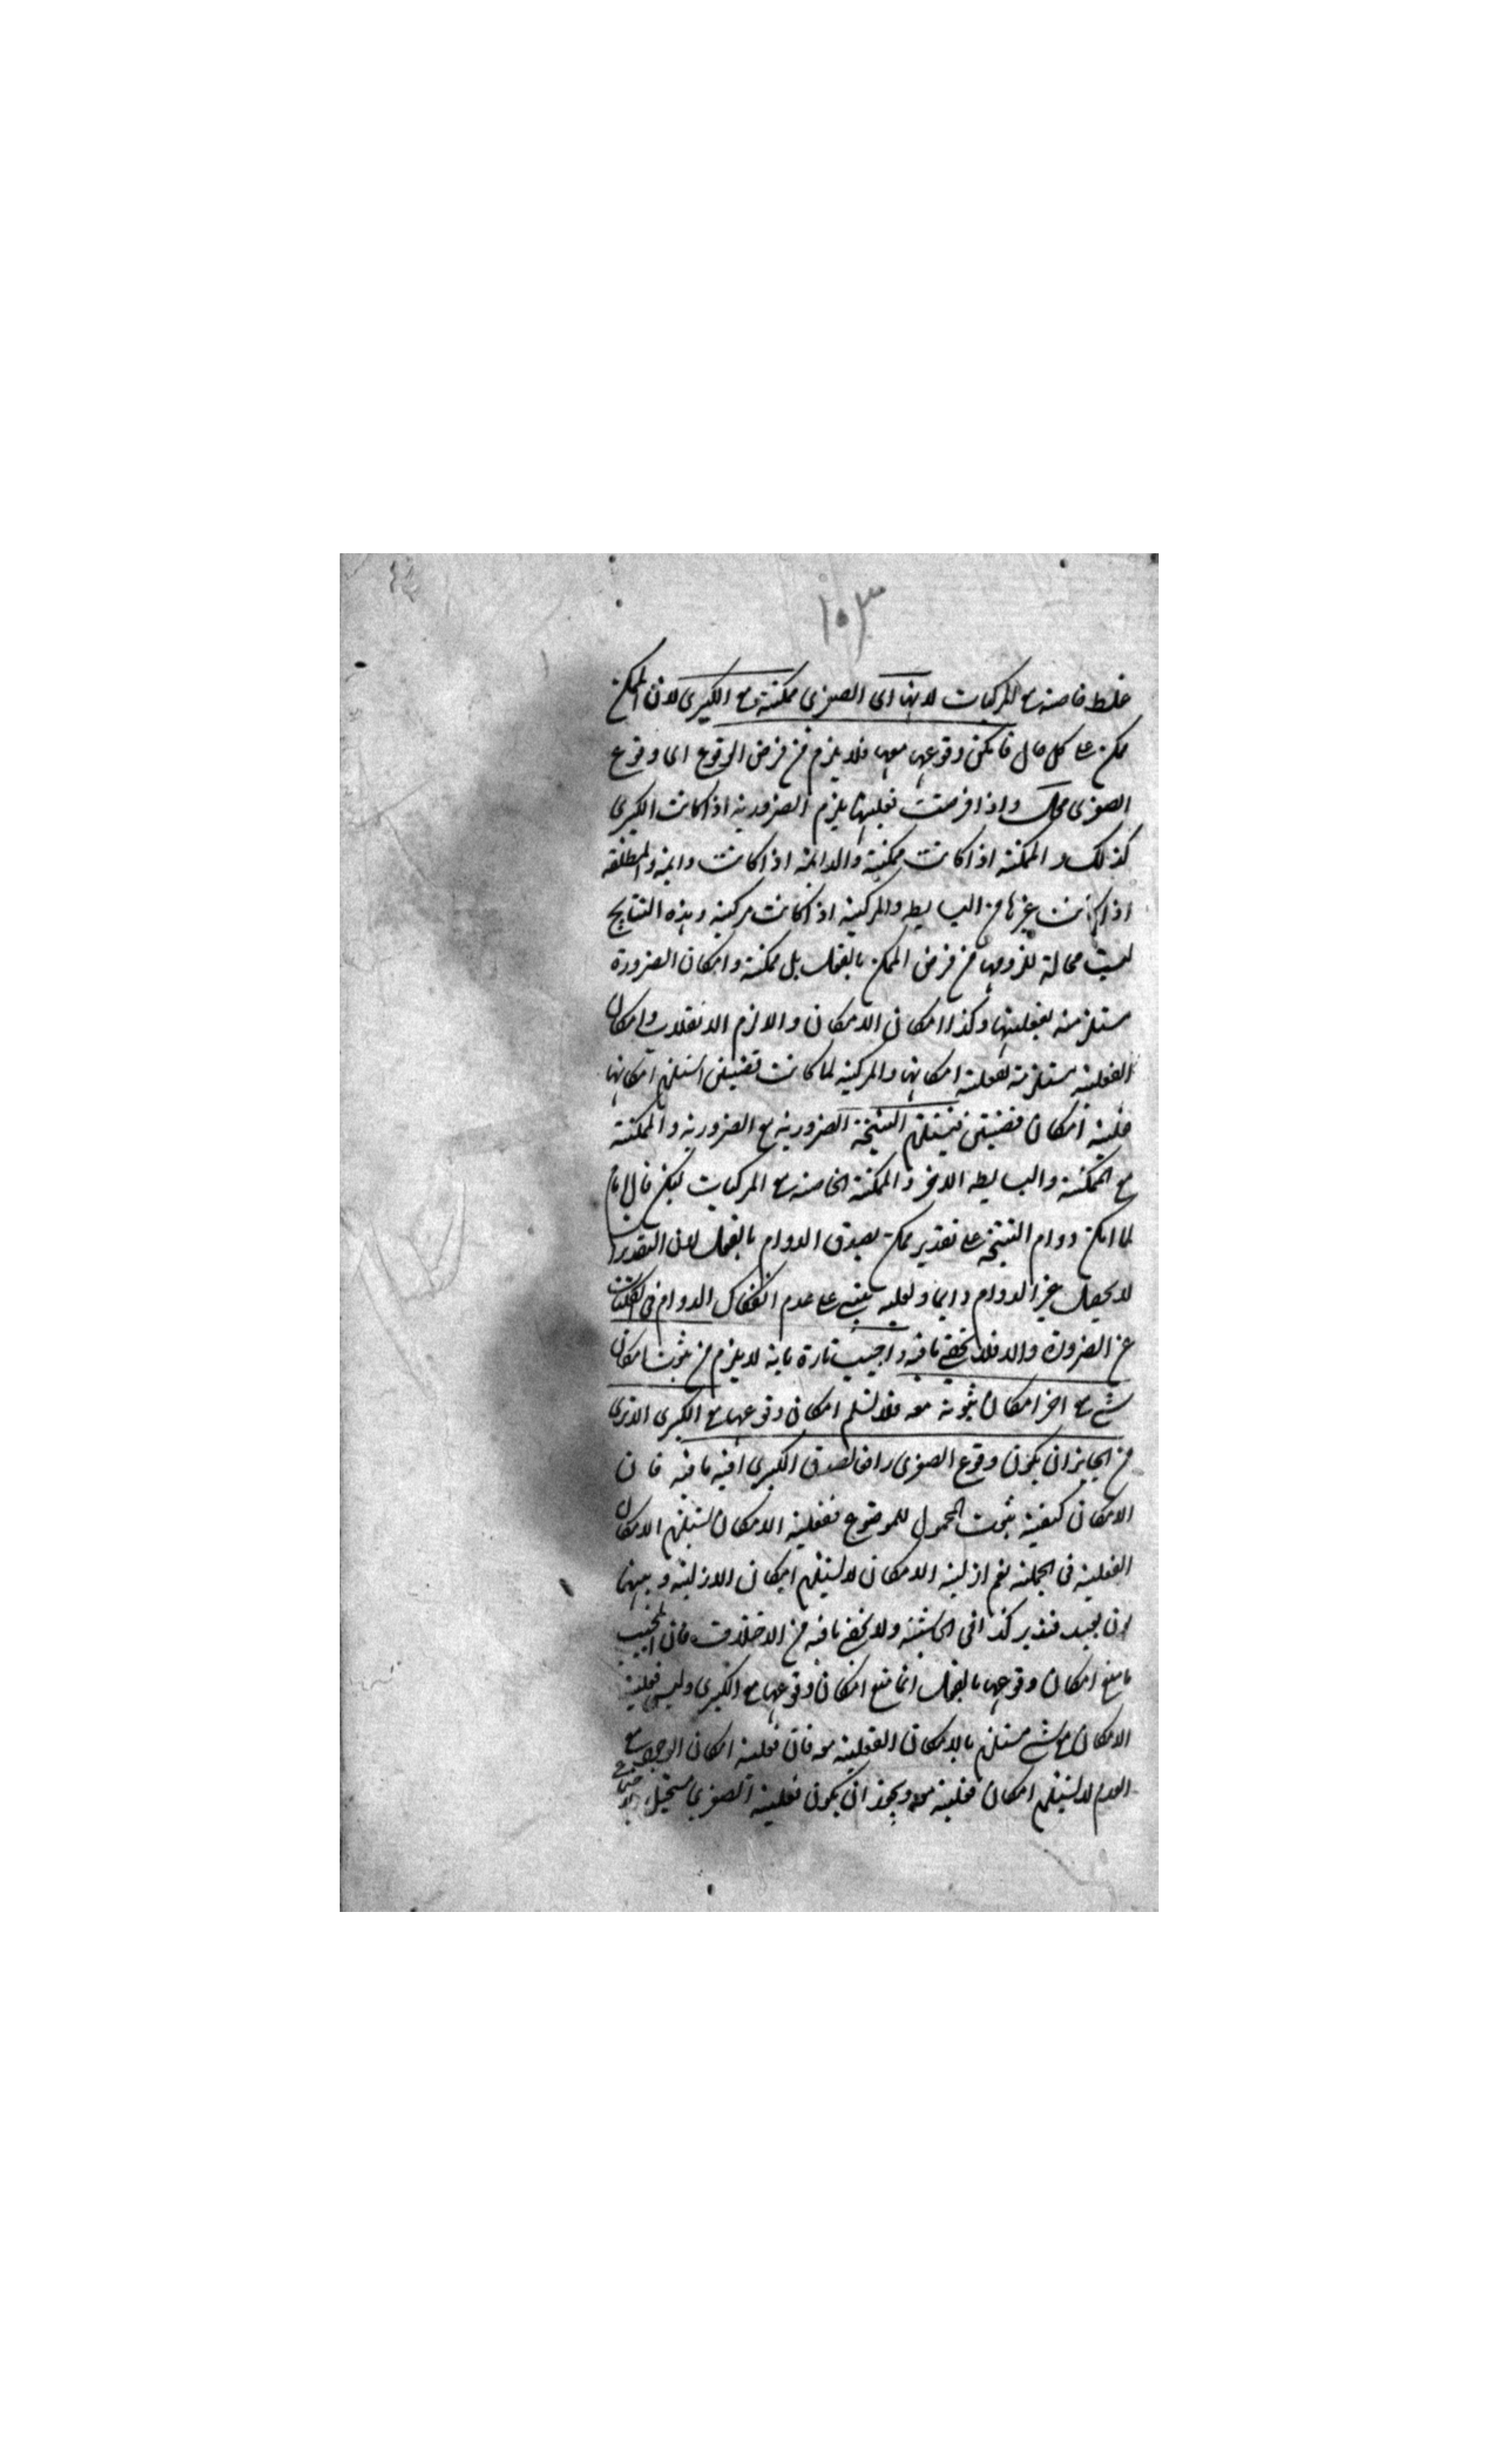 ١٠٣
خلط خاصة مع المركبات لانها اى الصغرى ممكنة مع الكبرى لان الممكن
ممكن على كل حال فامكن وقوعها معها فلا يلزم من فرض الوقوع اى وقوع
الصغرى محال واذا فرضت فعليتها يلزم الضرورية اذا كانت الكبرى
كذلك والممكنة اذا كانت ممكنة والدائمة اذا كانت دائمة والمطلقة
اذا كانت غيرها من البسايطه والمركبة اذا كانت مركبة وهذه النتايج
ليست محالة للزومها من فرض الممكن بالفعل بل ممكنة وامكان الضرورة
مستلزمة لفعليتها وكذا امكان الامكان والا لزم الانقلاب وامكان
الفعلية مستلزمة لفعلية امكانها والمركبة لما كانت قضيتين استلزم امكانها
فعلية امكان قضيتين فيستلزم النتيجة الضرورية مع الضرورية والممكنة
مع الممكنة والبسايطه الاخر والممكنة الخاصة مع المركبات لكن قال
لما امكن دوام النتيجة على تقدير ممكن يصدق الدوام بالفعل لان التقدير
لا يحصل غير الدوام دايما ولعله يبتنى على عدم انفكاك الدوام فى الكليات
عن الضرورة والا فلا يخفى ما فيه واجيب تارة بانه لا يلزم من ثبوت امكان
شئ مع اخر امكان ثبوته معه فلا نسلم امكان وقوعها مع الكبرى الا ترى
من الجايز ان يكون وقوع الصغرى رافعا لصدق الكبرى فيه ما فيه فان
الامكان كيفية ثبوت المحمول للموضوع ففعلية الامكان يستلزم الامكان
الفعلية فى الجملة نعم ازلية الامكان لا يستلزم امكان الازلية وبينهما
بون بعيد فتدبر كذا فى الحاشية ولا يخفى ما فيه من الاختلاف فان المجيب
ما منع امكان وقوعها بالفعل انما منع امكان وقوعها مع الكبرى وليس فعلية
الامكان مع شئ مستلزم بالامكان الفعلية معه فان فعلية امكان الوجود مع
العدم لا يستلزم امكان فعليته معه ويجوز ان يكون فعلية الصغرى مستحيل